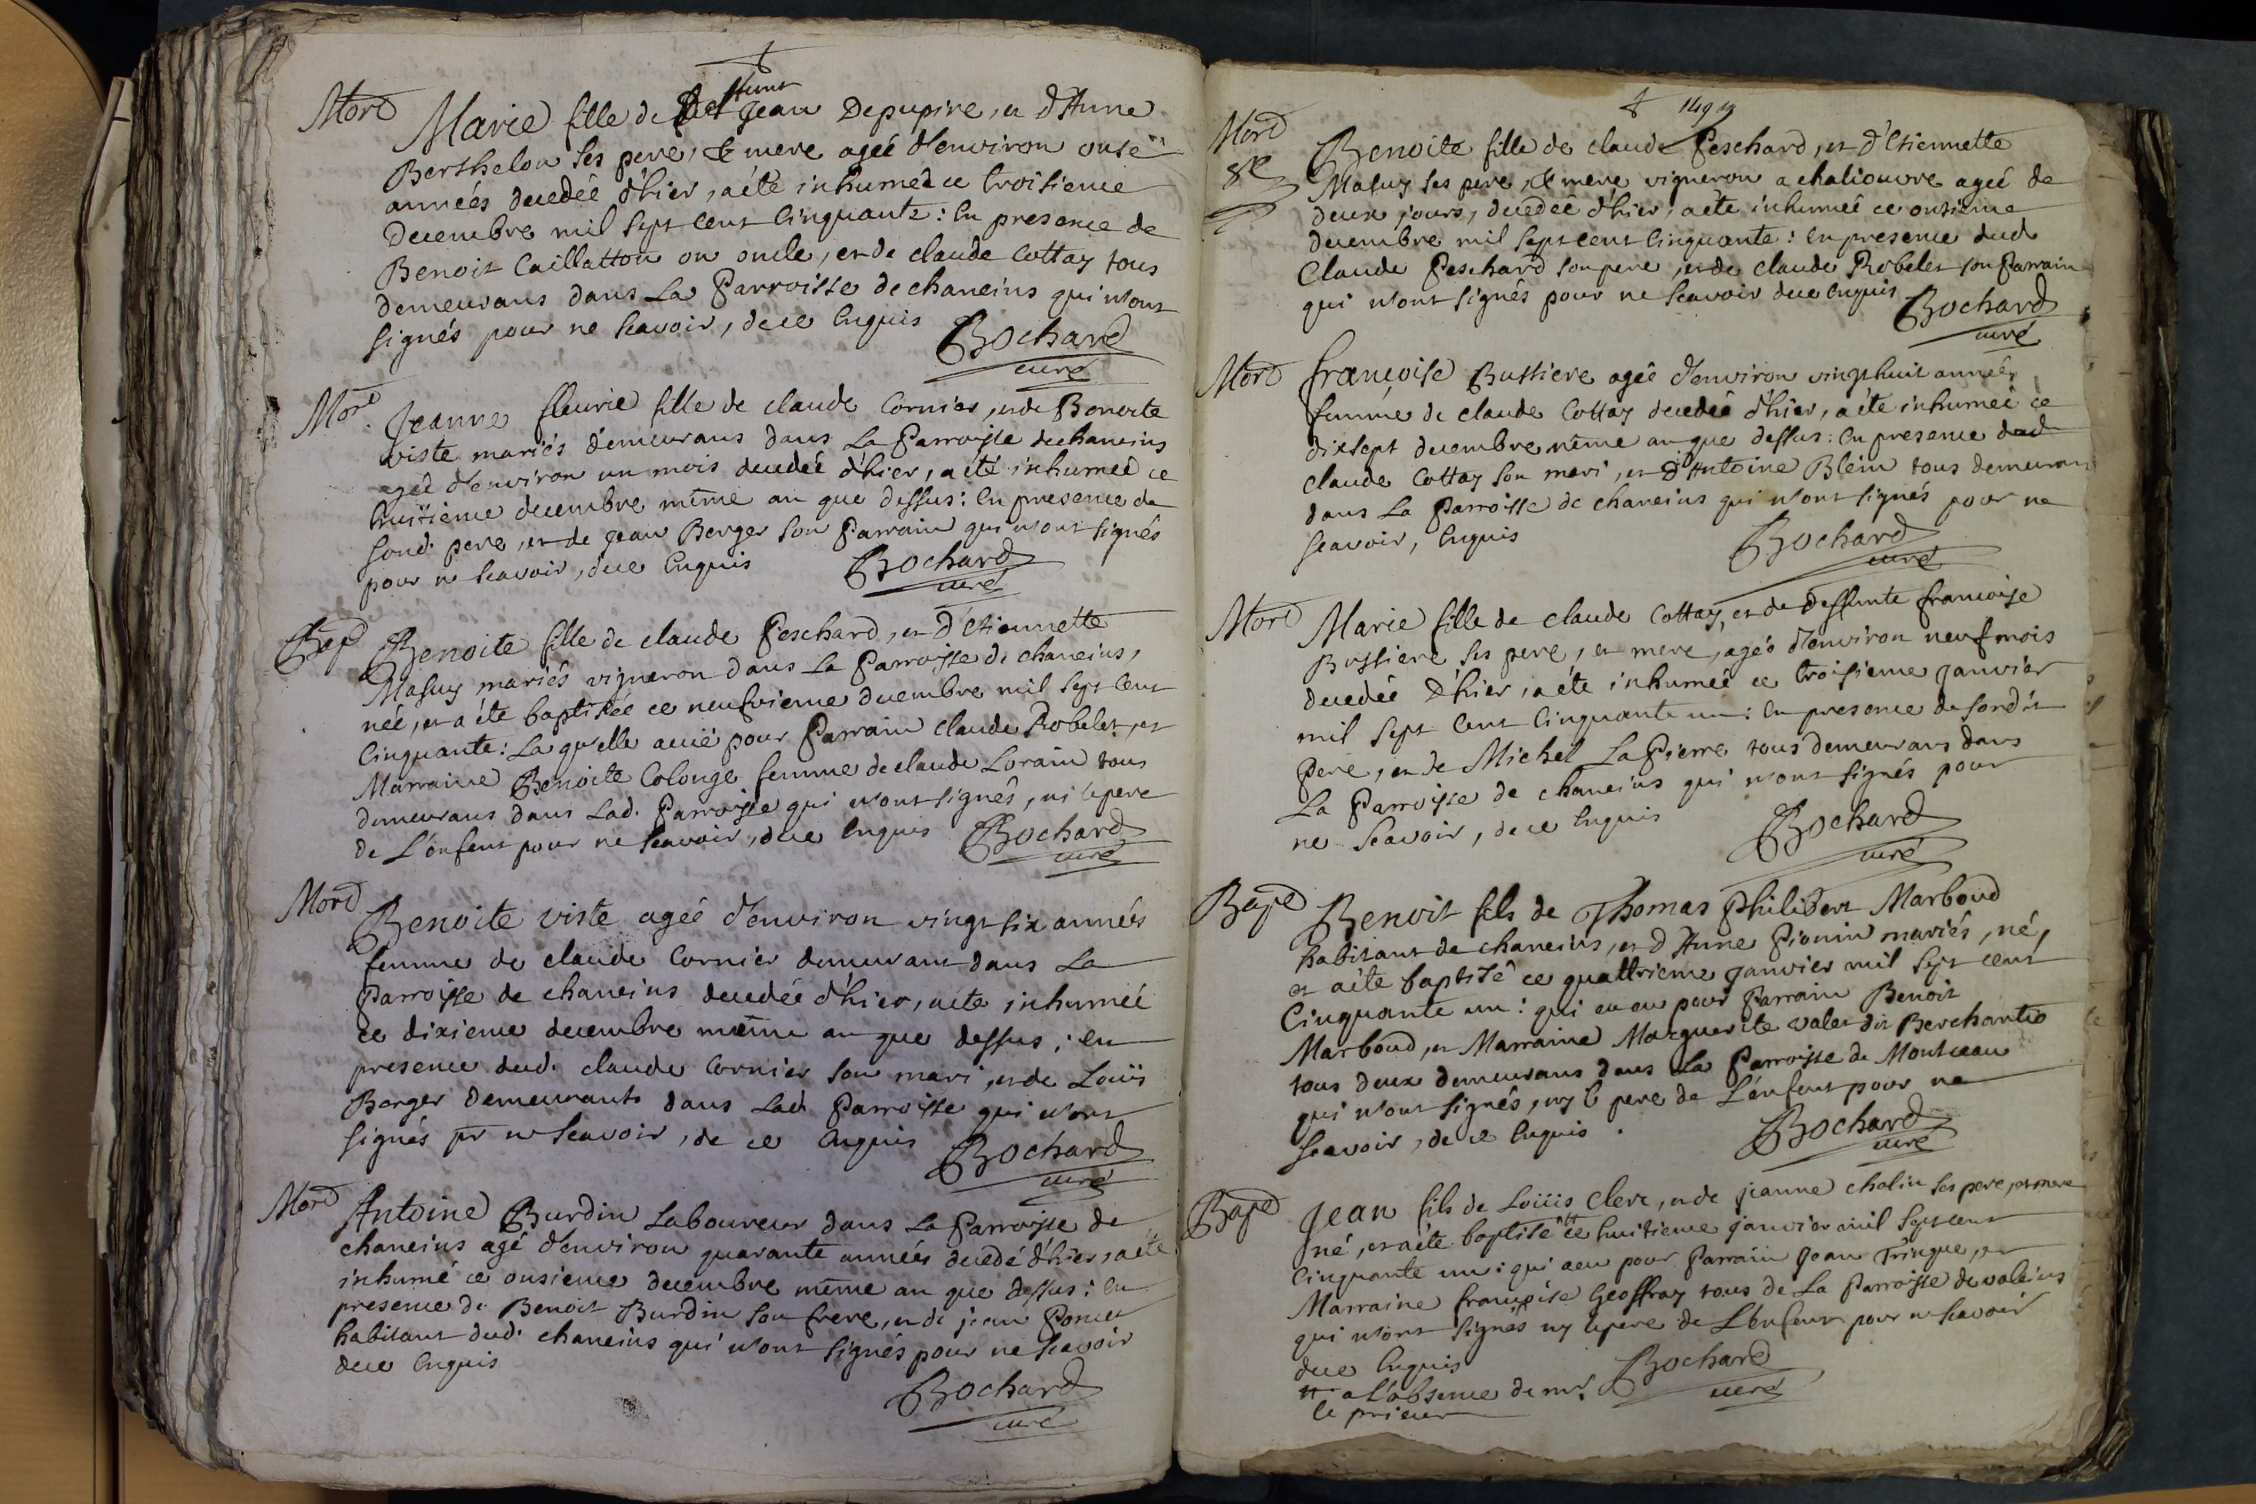 Mort Marie fille de deffunt Jean Depupire, et d'Anne
Berthelon ses pere, & mere ageé d'environ onse
anneés decedeé d'hier, a été inhumeé ce troisieme
Decembre mil sept cent cinquante : En presence de
Benoit Caillatton on oncle, et de claude Cottay tous
demeurans dans La Parroisse de chaneins qui n'ont
signés pour ne scavoir, de ce Enquis Bochard
curé
Mort Jeanne fleurie fille de claude Cornier, et de Benoite
viste mariés demeurans dans La Parroisse de chaneins
ageé d'environ un mois decedeé d'hier, a été inhumeé ce
huitieme decembre même an que dessus : En presence de
sond. pere, et de Jean Berger son Parrain qui n'ont signés
pour ne scavoir, de ce Enquis Bochard
curé
Bap Benoite fille de claude Peschard, et d'Etiennette
Masuy mariés vigneron dans La Parroisse de chaneins,
née, et a éte baptiseé ce neufvieme decembre mil sept cent
Cinquante : La qu'elle a euë pour Parrain claude Robelet, et
Marraine Benoite Colonge femme de claude Lorain tous
demeurans dans Lad. Parroisse qui n'ont signés, ni le pere
de L'énfent pour ne scavoir, de ce Enquis Bochard
curé
Mort Benoite viste ageé d'environ vingt six années
femme de claude Cornier demeurant dans La
Parroisse de chaneins decedée d'hier, a éte inhumeé
ce dixieme decembre même an que dessus ; En
presence dud. claude Cornier son mari, et de Louis
Berger demeurants dans Lad. Parroisse qui n'ont
signés pr ne scavoir, de ce Enquis Bochard
curé
Mort Antoine Burdin Laboureur dans La Parroisse de
chaneins agé d'environ quarante années decedé d'hier, a éte
inhumé ce onsieme decembre même an que dessus : En
presence de Benoit Burdin son frere, et de jean Poncet
habitant dud. chaneins qui n'ont signés pour ne scavoir
de ce Enquis
Bochard
curé
149
Mort Benoite fille de claude Peschard, et d'Etiennette
Masuy ses pere, & mere vigneron a chaliouvre ageé de
deux jours, decedeé d'hier, a éte inhumeé ce onsieme
decembre mil sept cent Cinquante : En presence dud
Claude Peschard son pere, et de claude Robelet son Parrain
qui n'ont signés pour ne scavoir de ce Enquis Bochard
curé
Mort françoise Bussiere ageé d'environ vingt huit années
femme de claude Cottay decedeé d'hier, a éte inhumeé ce
dixsept decembre même an que dessus : En presence dud
claude Cottay son mari, et d'Antoine Blein tous demeurans
dans La Parroisse de chaneins qui n'ont signés pour ne
scavoir, Enquis Bochard
curé
Mort Marie fille de claude Cottay, et de deffunte francoise
Bussiere ses pere, et mere, ageé d'environ neuf mois
decedeé d'hier, a éte inhumeé ce troisieme Janvier
mil sept Cent Cinquante un : En presence de sondit
Pere, et de Michel La Pierre tous demeurans dans
La Parroisse de chaneins qui n'ont signés pour
ne scavoir, de ce Enquis Bochard
curé
Bapt Benoit fils de Thomas Philibert Marboud
habitant de chaneins, et d'Anne Pionin mariés, né,
et a éte baptisé ce quattrieme Janvier mil sept cent
Cinquante un : qui eu eu pour Parrain Benoit
Marboud, et Marraine Marguerite valet dit Berchantio
tous deux demeurans dans La Parroisse de Montceau
qui n'ont signés, ny le pere de L'énfent pour ne
scavoir, de ce Enquis . Bochard
curé
Bapt Jean fils de Loüis Clerc, et de jeanne chalin ses pere, et mere
né, et a éte baptisé # ce huitieme janvier mil sept cent
Cinquante un : qui a eu pour Parrain Jean Tringue, et
Marraine françoise Geoffray tous de La Parroisse de valeins
qui n'ont signés ny le pere de L'énfent pour ne scavoir
de ce Enquis Bochard
# a l'absence de mr. curé
le prieur